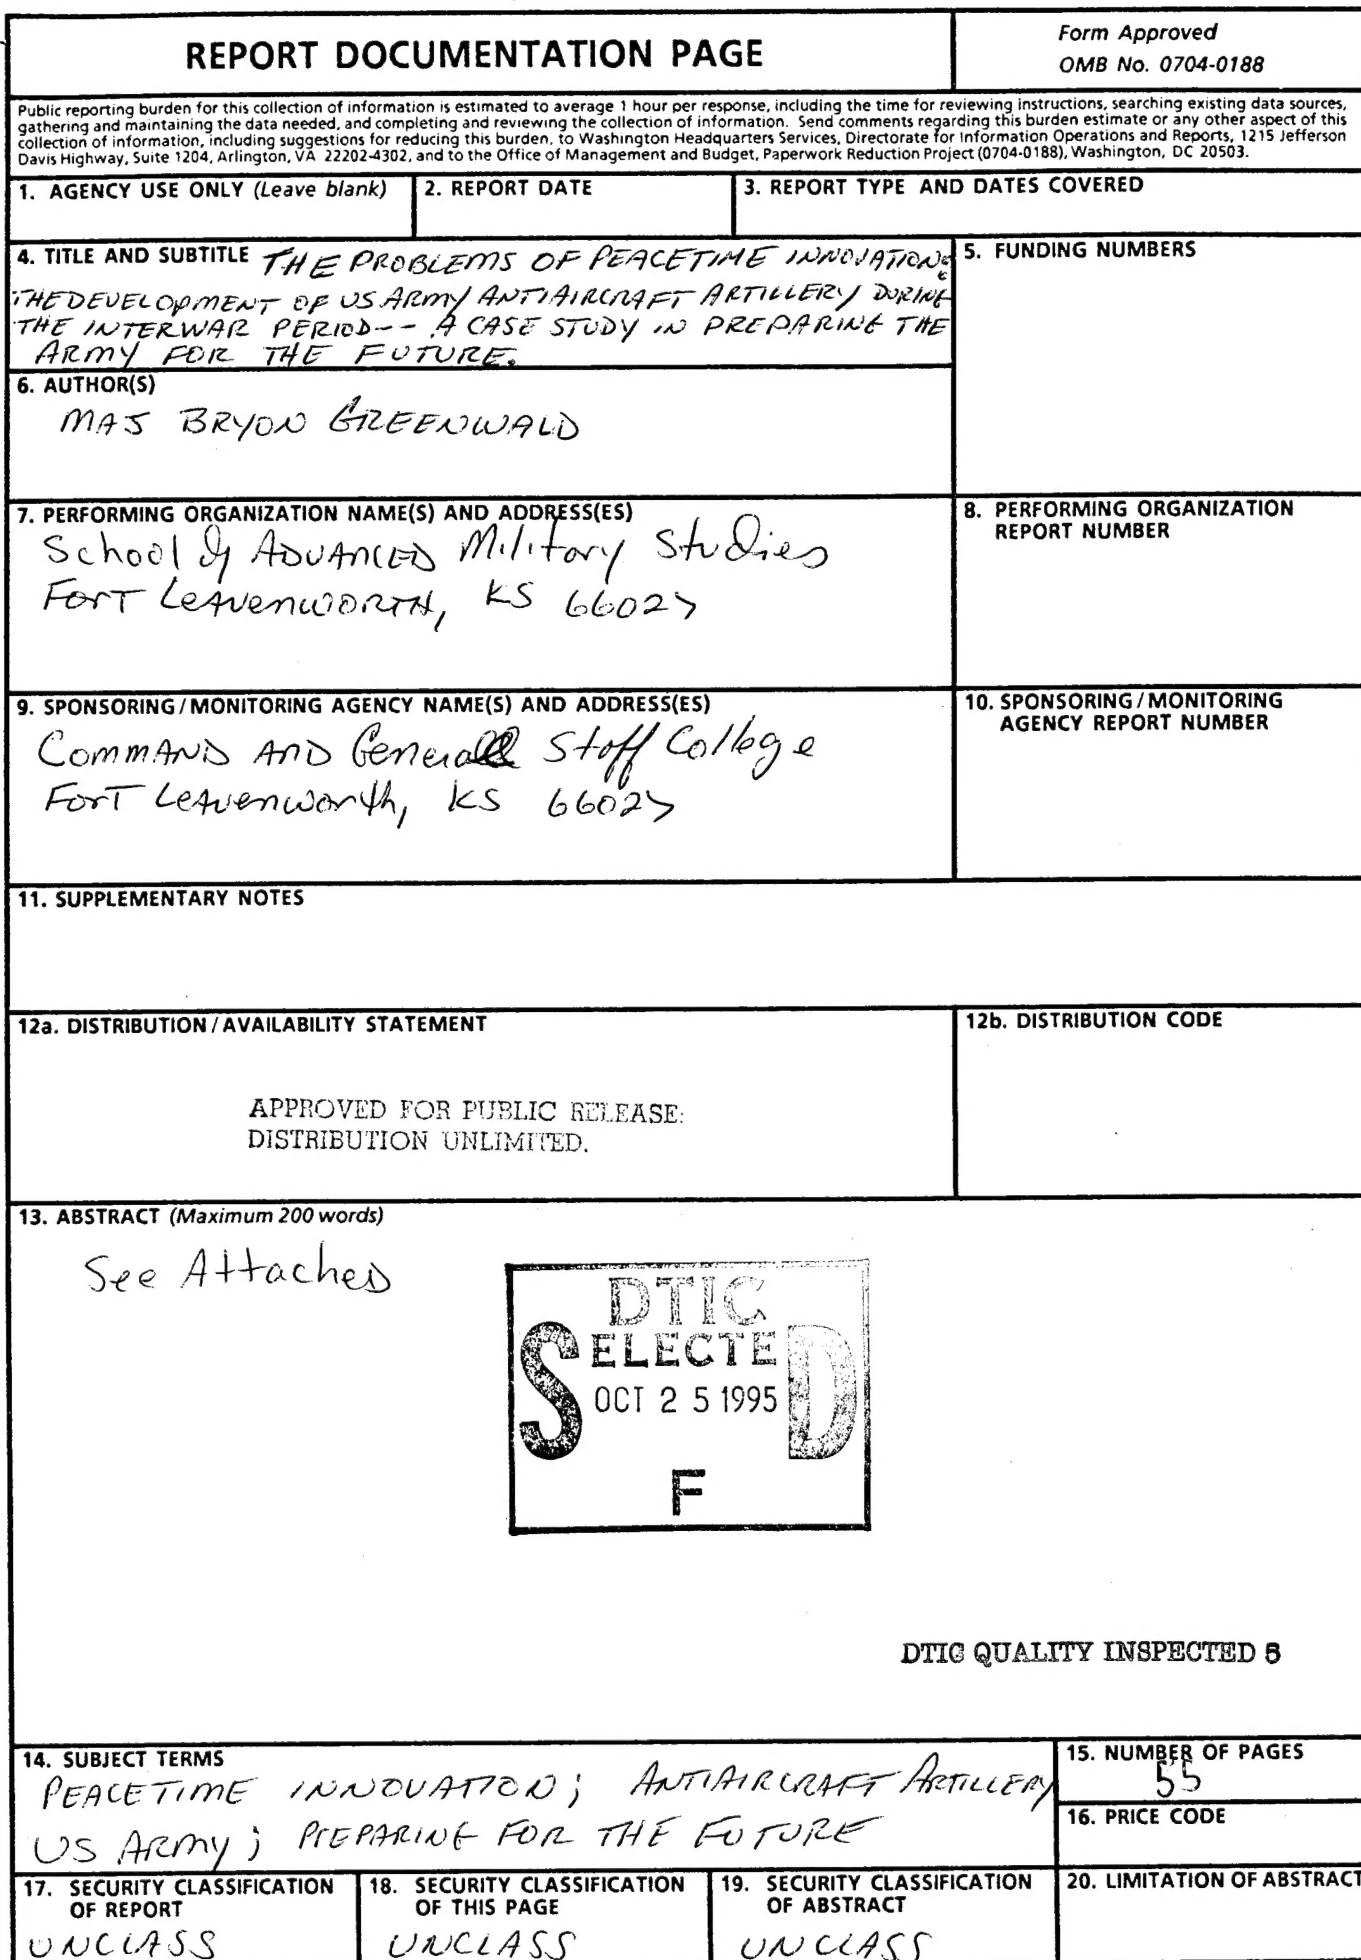 REPORT DOCUMENTATION PAGE
Form Approved
OMB No. 0704-0188
Public reporting burden for this collection of information is estimated to average 1 hour per response, including the time for reviewing instructions, searching existing data sources,
gathering and maintaining the data needed, and completing and reviewing the collection of information. Send comments regarding this burden estimate or any other aspect of this
collection of information, including suggestions for reducing this burden, to Washington Headquarters Services, Directorate for Information Operations and Reports, 1215 Jefferson
Davis Highway, Suite 1204, Arlington, VA 22202-4302, and to the Office of Management and Budget, Paperwork Reduction Project (0704-0188), Washington, DC 20503.
1. AGENCY USE ONLY (Leave blank)
2. REPORT DATE
3. REPORT TYPE AND DATES COVERED
4. TITLE AND SUBTITLE THE PROBLEMS OF PEACETIME INNOVATION:
THE DEVELOPMENT OF US ARMY ANTIAIRCRAFT ARTILLERY DURING
THE INTERWAR PERIOD-- A CASE STUDY IN PREPARING THE
ARMY FOR THE FUTURE.
5. FUNDING NUMBERS
6. AUTHOR(S)
MAJ BRYON GREENWALD
7. PERFORMING ORGANIZATION NAME(S) AND ADDRESS(ES)
School of ADVANCED Military Studies
FORT LEAVENWORTH, KS 66027
8. PERFORMING ORGANIZATION
REPORT NUMBER
9. SPONSORING/MONITORING AGENCY NAME(S) AND ADDRESS(ES)
COMMAND AND General Staff College
FORT Leavenworth, KS 66027
10. SPONSORING/MONITORING
AGENCY REPORT NUMBER
11. SUPPLEMENTARY NOTES
12a. DISTRIBUTION/AVAILABILITY STATEMENT
APPROVED FOR PUBLIC RELEASE:
DISTRIBUTION UNLIMITED.
12b. DISTRIBUTION CODE
13. ABSTRACT (Maximum 200 words)
See Attached
DTIC
S ELECTE D
OCT 25 1995
F
DTIC QUALITY INSPECTED 5
14. SUBJECT TERMS
PEACETIME INNOVATION; ANTIAIRCRAFT ARTILLERY
US ARMY; PREPARING FOR THE FUTURE
15. NUMBER OF PAGES
55
16. PRICE CODE
17. SECURITY CLASSIFICATION
OF REPORT
UNCLASS
18. SECURITY CLASSIFICATION
OF THIS PAGE
UNCLASS
19. SECURITY CLASSIFICATION
OF ABSTRACT
UNCLASS
20. LIMITATION OF ABSTRACT